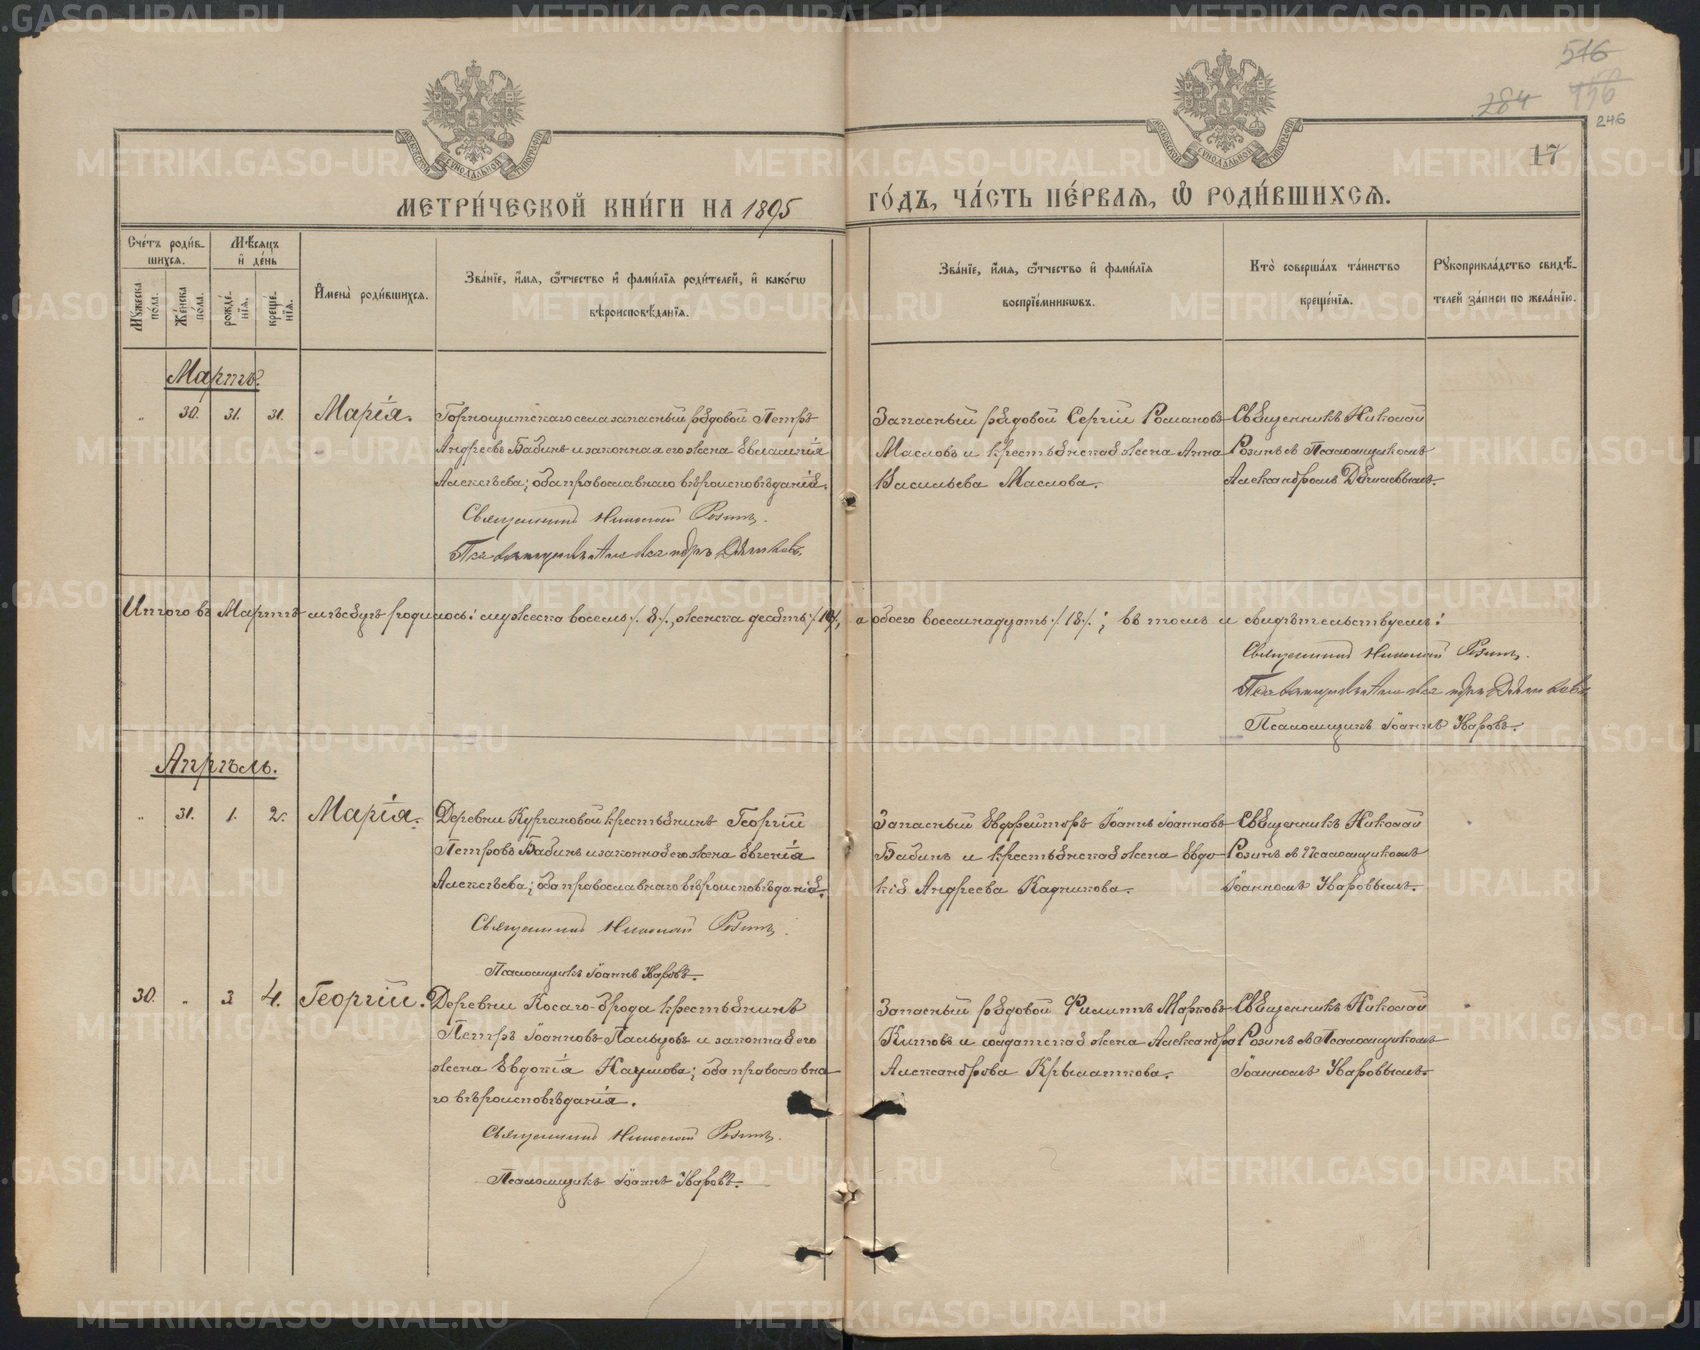 516
156
284
246
17
МОСКОВСКОЙ СѴНОДАЛЬНОЙ ТИПОГРАФІИ
МОСКОВСКОЙ СѴНОДАЛЬНОЙ ТИПОГРАФІИ
МЕТРИ́ЧЕСКОЙ КНИ́ГИ НА 1895 ГО́ДЪ, ЧА́СТЬ ПЕ́РВАѦ, Ѡ҆ РОДИ́ВШИХСѦ.
Сче́тъ роди́в-
шихсѧ.
Мѣ́сѧцъ
и҆ де́нь
Мꙋ́жеска
по́ла.
Же́нска
по́ла.
рожде́-
нїѧ.
креще́-
нїѧ.
И҆мена̀ роди́вшихсѧ.
Зва́нїе, и҆́мѧ, ѻ҆́тчество и҆ фами́лїѧ роди́телей, и҆ како́гѡ
вѣроисповѣ́данїѧ.
Зва́нїе, и҆́мѧ, ѻ҆́тчество и҆ фами́лїѧ
воспрїе́мникѡвъ.
Кто̀ соверша́лъ та́инство
креще́нїѧ.
Рꙋкоприкла́дство свидѣ́-
телей за́писи по жела́нїю.
Мартъ.
„ 30. 31. 31. Марія.
Горнощитскаго села запасный рядовой Петръ
Андреевъ Бабинъ и законная его жена Евлампія
Алексѣева; оба православнаго вѣроисповѣданія.
Священникъ Николай Розинъ.
Запасный рядовой Сергій Романовъ
Масловъ и крестьянская жена Анна
Васильева Маслова.
Священникъ Николай
Розинъ съ Псаломщикомъ
Итого въ Мартѣ мѣсяцѣ родилось: мужеска восемь /8/, женска десять /10/, а обоего восемнадцать /18/; въ томъ и свидѣтельствуемъ:
Священникъ Николай Розинъ.
Псаломщикъ Іоаннъ Уваровъ.
Апрѣль.
„ 31. 1. 2. Марія.
Деревни Кургановой крестьянинъ Георгій
Петровъ Бабинъ и законная его жена Евгенія
Алексѣева; оба православнаго вѣроисповѣданія.
Священникъ Николай Розинъ.
Псаломщикъ Іоаннъ Уваровъ.
Запасный Ефрейторъ Іоаннъ Іоанновъ
Бабинъ и крестьянская жена Евдо-
кія Андреева Кадникова.
Священникъ Николай
Розинъ съ Псаломщикомъ
Іоанномъ Уваровымъ.
30. „ 3. 4. Георгій.
Деревни Косаго-Брода крестьянинъ
Петръ Іоанновъ Пальцовъ и законная его
жена Евдокія Наумова; оба православна
го вѣроисповѣданія.
Священникъ Николай Розинъ.
Псаломщикъ Іоаннъ Уваровъ.
Запасный рядовой Филиппъ Марковъ
Китовъ и солдатская жена Александра
Александрова Крылаткова.
Священникъ Николай
Розинъ съ Псаломщикомъ
Іоанномъ Уваровымъ.
METRIKI.GASO-URAL.RU